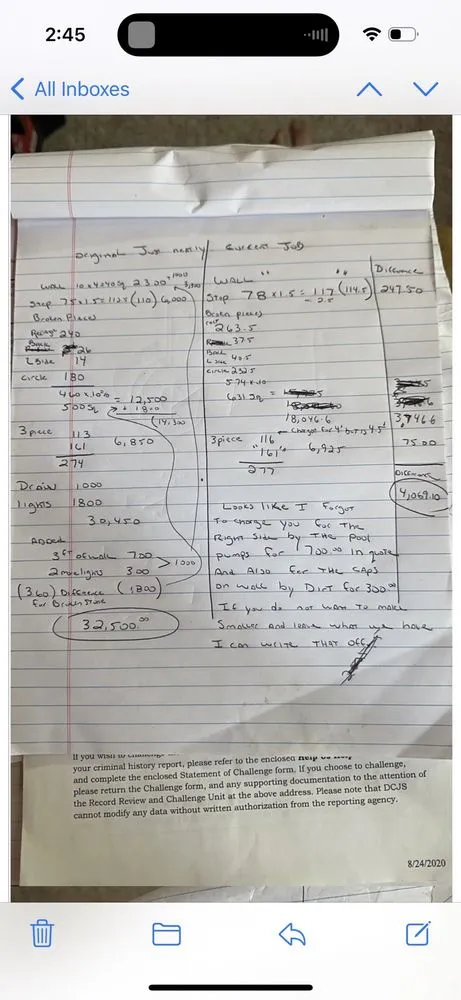 2:45
All Inboxes
Original Just nextly
Current Job
Difference
Wall 10 x 4 = 40 sq 2300 +1000 3,300
Step 75 x 1.5 = 112.5 (110) 6,000
Broken Pieces
240
Back 26
L Side 14
Circle 180
460 x 10%
500 Sq = 12,500
+ 1800
14,300
3 piece 113
161 6,850
274
Drain 1000
lights 1800
30,450
Added
3 ft of wall 700
2 more lights 300 > 1000
(360) Difference (1800)
for Broken Stone
32,500.00
Wall " "
Step 78 x 1.5 = 117 (114.5) 247.50
- 2.5
Broken pieces
263.5
37.5
Back
L Side 40.5
Circle 232.5
574 x .10
631.2 sq =
18,046.6 3,746.6
← charged for 4' but is 4.5'
3 piece "116
"161" 6,925 75.00
277
Difference
4,069.10
Looks like I forgot
To charge you for the
Right Side by the pool
pumps for 700.00 in quote
And Also for the caps
on wall by Dirt for 300.00
If you do not want to make
Smaller and leave what we have
I can write that off
If you wish to challenge
your criminal history report, please refer to the enclosed
and complete the enclosed Statement of Challenge form. If you choose to challenge,
please return the Challenge form, and any supporting documentation to the attention of
the Record Review and Challenge Unit at the above address. Please note that DCJS
cannot modify any data without written authorization from the reporting agency.
8/24/2020